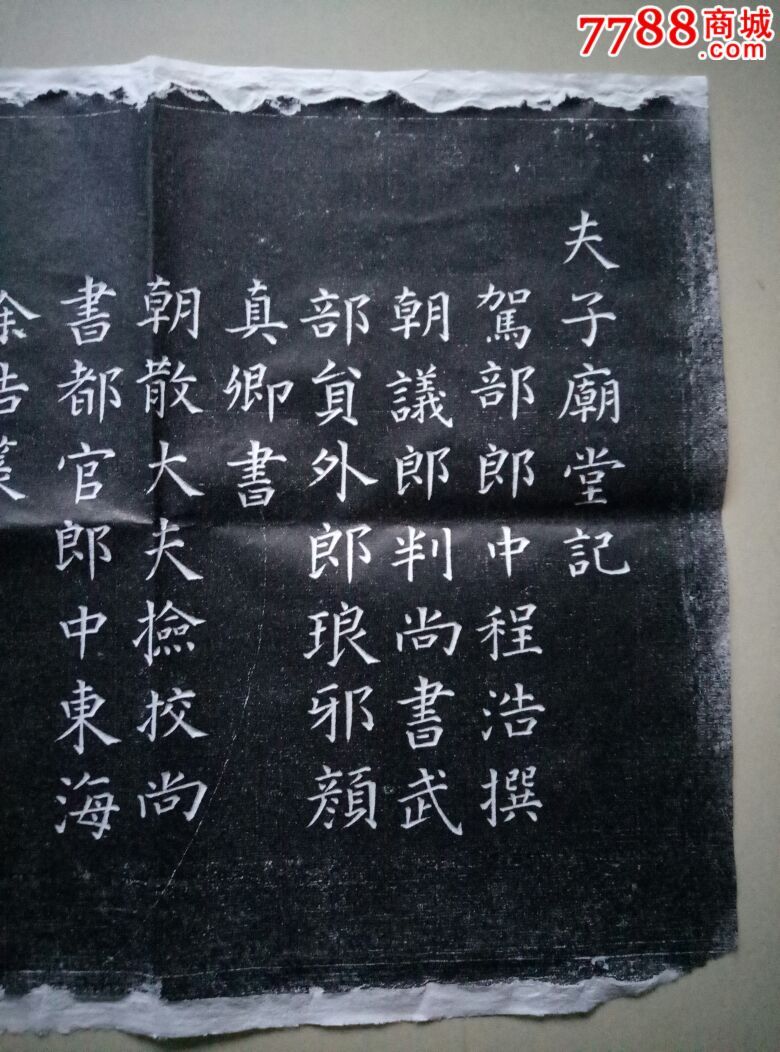 7788商城
.com
夫子廟堂記
駕部郎中程浩撰
朝議郎判尚書武
部貟外郎琅邪顔
真卿書
朝散大夫撿挍尚
書都官郎中東海
徐浩篆